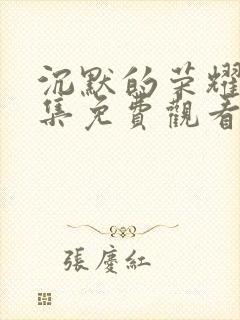 沉默的荣耀
集免費觀看
張慶紅